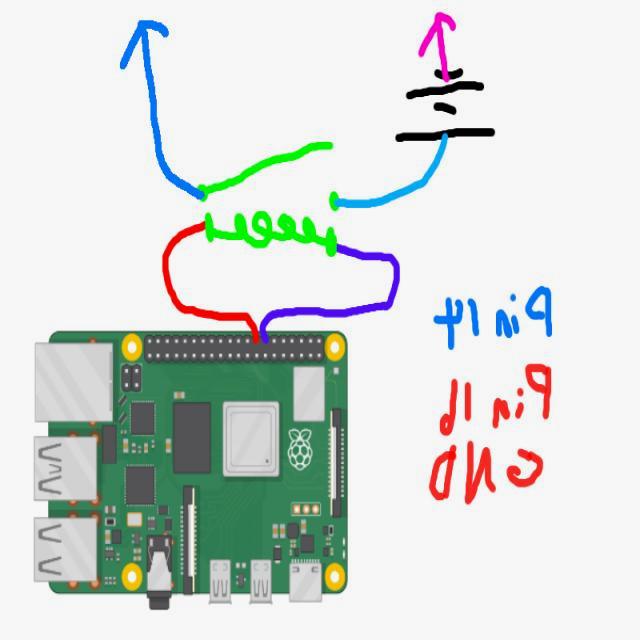 Pin 14
Pin 16
GND